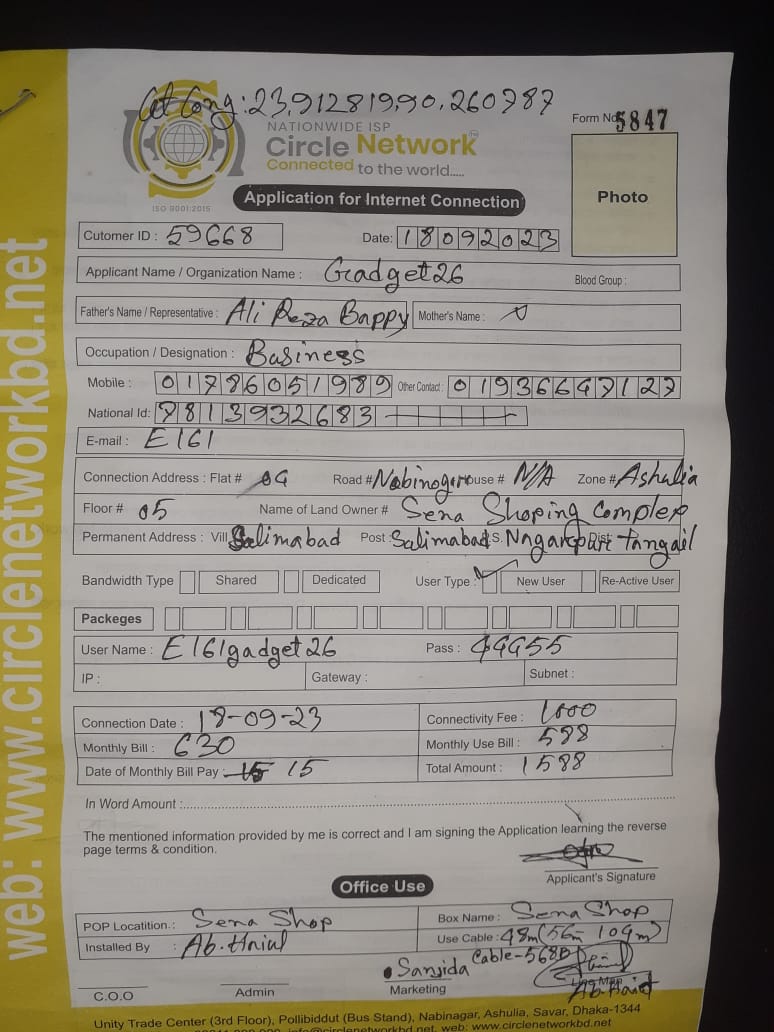 Lat Long: 23.9128199,90.260787
Form No. 5847
NATIONWIDE ISP
Circle Network™
Connected to the world.....
ISO 9001:2015
Application for Internet Connection
Photo
Cutomer ID : 59668 Date: 18092023
Applicant Name / Organization Name : Gadget26 Blood Group :
Father's Name / Representative : Ali Reza Bappy Mother's Name :
Occupation / Designation : Business
Mobile : 01786051989 Other Contact : 01936647127
National Id: 7813932683
E-mail : E161
Connection Address : Flat # Road # Nabinogor House # N/A Zone # Ashulia
Floor # 05 Name of Land Owner # Sena Shoping Complex
Permanent Address : Vill Salimabad Post : Salimabad P.S. Nagarpur Dist: Tangail
Bandwidth Type Shared Dedicated User Type : New User Re-Active User
Packeges
User Name : E161gadget26 Pass : 44455
IP : Gateway : Subnet :
Connection Date : 18-09-23 Connectivity Fee : 1000
Monthly Bill : 630 Monthly Use Bill : 588
Date of Monthly Bill Pay : 15 15 Total Amount : 1588
In Word Amount :
The mentioned information provided by me is correct and I am signing the Application learning the reverse
page terms & condition.
Applicant's Signature
Office Use
POP Locatition.: Sena Shop Box Name : Sena Shop
Installed By : Use Cable : 48m (56m - 104m)
Cable-568D
Sanjida
C.O.O Admin Marketing
Unity Trade Center (3rd Floor), Pollibiddut (Bus Stand), Nabinagar, Ashulia, Savar, Dhaka-1344
web: www.circlenetworkbd.net
web: www.circlenetworkbd.net